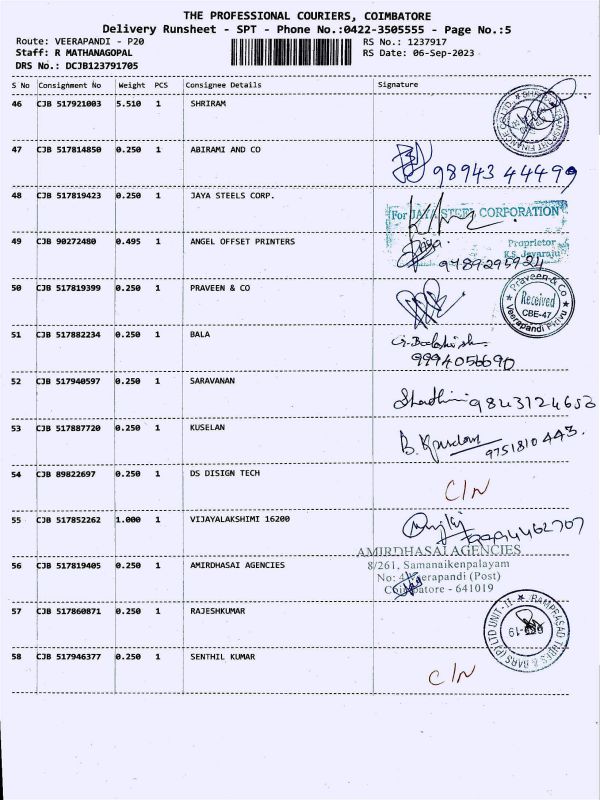 THE PROFESSIONAL COURIERS, COIMBATORE
Delivery Runsheet - SPT - Phone No.:0422-3505555 - Page No.:5
Route: VEERAPANDI - P20 RS No.: 1237917
Staff: R MATHANAGOPAL RS Date: 06-Sep-2023
DRS No.: DCJB123791705
S No Consignment No Weight PCS Consignee Details Signature
46 CJB 517921003 5.510 1 SHRIRAM
47 CJB 517814850 0.250 1 ABIRAMI AND CO
98943 44499
48 CJB 517819423 0.250 1 JAYA STEELS CORP.
For JAYA STEEL CORPORATION
49 CJB 90272480 0.495 1 ANGEL OFFSET PRINTERS
Proprietor
K.S. Jeyaraju
50 CJB 517819399 0.250 1 PRAVEEN & CO
Praveen & Co
Received
CBE-47
51 CJB 517882234 0.250 1 BALA
9994056690
52 CJB 517940597 0.250 1 SARAVANAN
9843124653
53 CJB 517887720 0.250 1 KUSELAN
9751810443
54 CJB 89822697 0.250 1 DS DISIGN TECH
C/N
55 CJB 517852262 1.000 1 VIJAYALAKSHIMI 16200
AMIRDHASAI AGENCIES
56 CJB 517819405 0.250 1 AMIRDHASAI AGENCIES
8/261, Samanaikenpalayam
(Post)
- 641019
57 CJB 517860871 0.250 1 RAJESHKUMAR
58 CJB 517946377 0.250 1 SENTHIL KUMAR
C/N